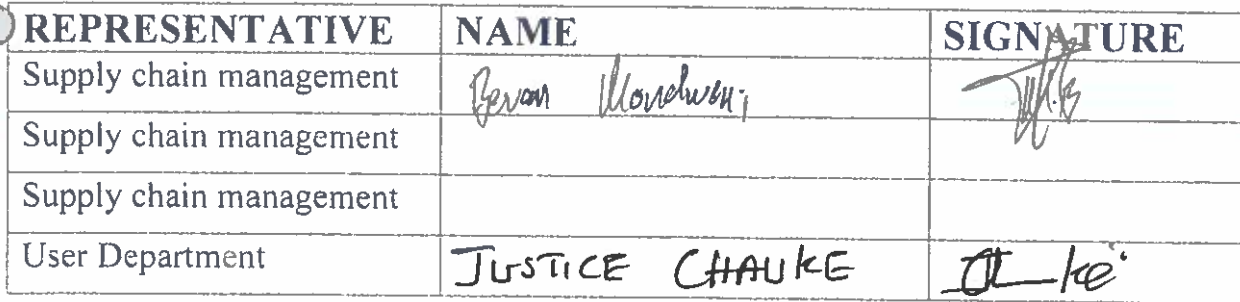 REPRESENTATIVE NAME SIGNATURE
Supply chain management
Supply chain management
Supply chain management
User Department JUSTICE CHAUKE